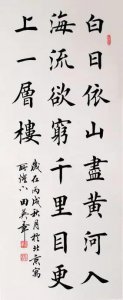 白日依山盡黄河入
海流欲窮千里目更
上一層樓
歲在丙戌秋月於北京寫
田英章